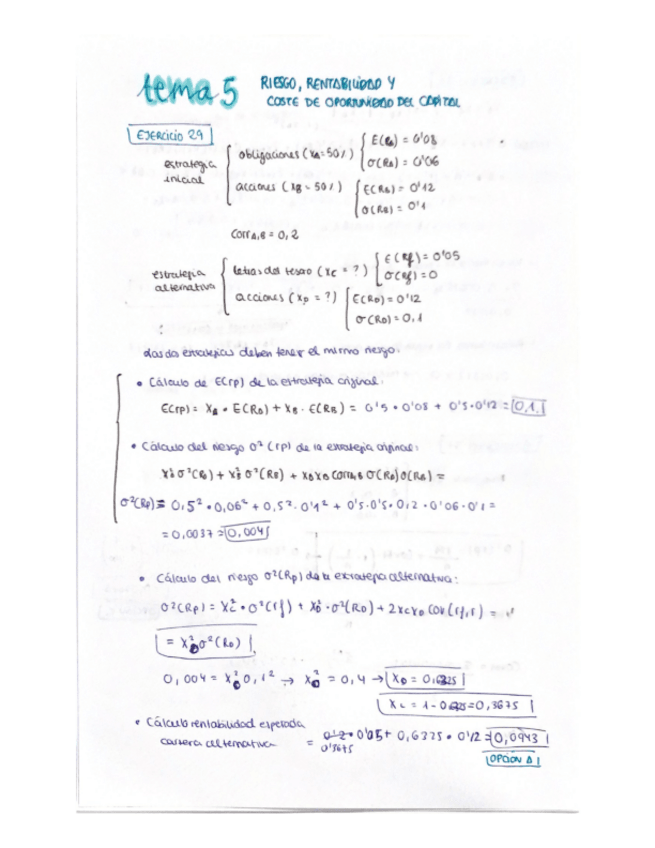 tema 5 RIESGO, RENTABILIDAD Y
COSTE DE OPORTUNIDAD DEL CAPITAL
EJERCICIO 29
estrategia inicial
obligaciones (XA=50%) E(RA) = 0'08
σ(RA) = 0'06
acciones (XB = 50%) E(RB) = 0'12
σ(RB) = 0'1
CorrA,B = 0,2
estrategia alternativa
letras del tesoro (XC = ?) E(Rf) = 0'05
σ(Rf) = 0
acciones (XD = ?) E(RD) = 0'12
σ(RD) = 0,1
deben tener el mismo riesgo.
• Cálculo de E(rp) de la estrategia original:
E(rp) = XA • E(RA) + XB • E(RB) = 0'5 • 0'08 + 0'5 • 0'12 = 0,1
• Cálculo del riesgo σ²(rp) de la estrategia original:
XA²σ²(RA) + XB²σ²(RB) + XAXB CorrA,B σ(RA)σ(RB) =
σ²(Rp) = 0,5² • 0,06² + 0,5² • 0'1² + 0'5 • 0'5 • 0,2 • 0'06 • 0'1 =
= 0,0037 = 0,004
• Cálculo del riesgo σ²(Rp) de la estrategia alternativa:
σ²(Rp) = XC² • σ²(rf) + XD² • σ²(RD) + 2XCXD COV(rf,r) =
= XD²σ²(RD)
0,004 = XD² 0,1² → XD² = 0,4 → XD = 0,6325
XC = 1 - 0,6325 = 0,3675
• Cálculo rentabilidad esperada
cartera alternativa = 0'3675 • 0'05 + 0,6325 • 0'12 = 0,0943
OPCIÓN A